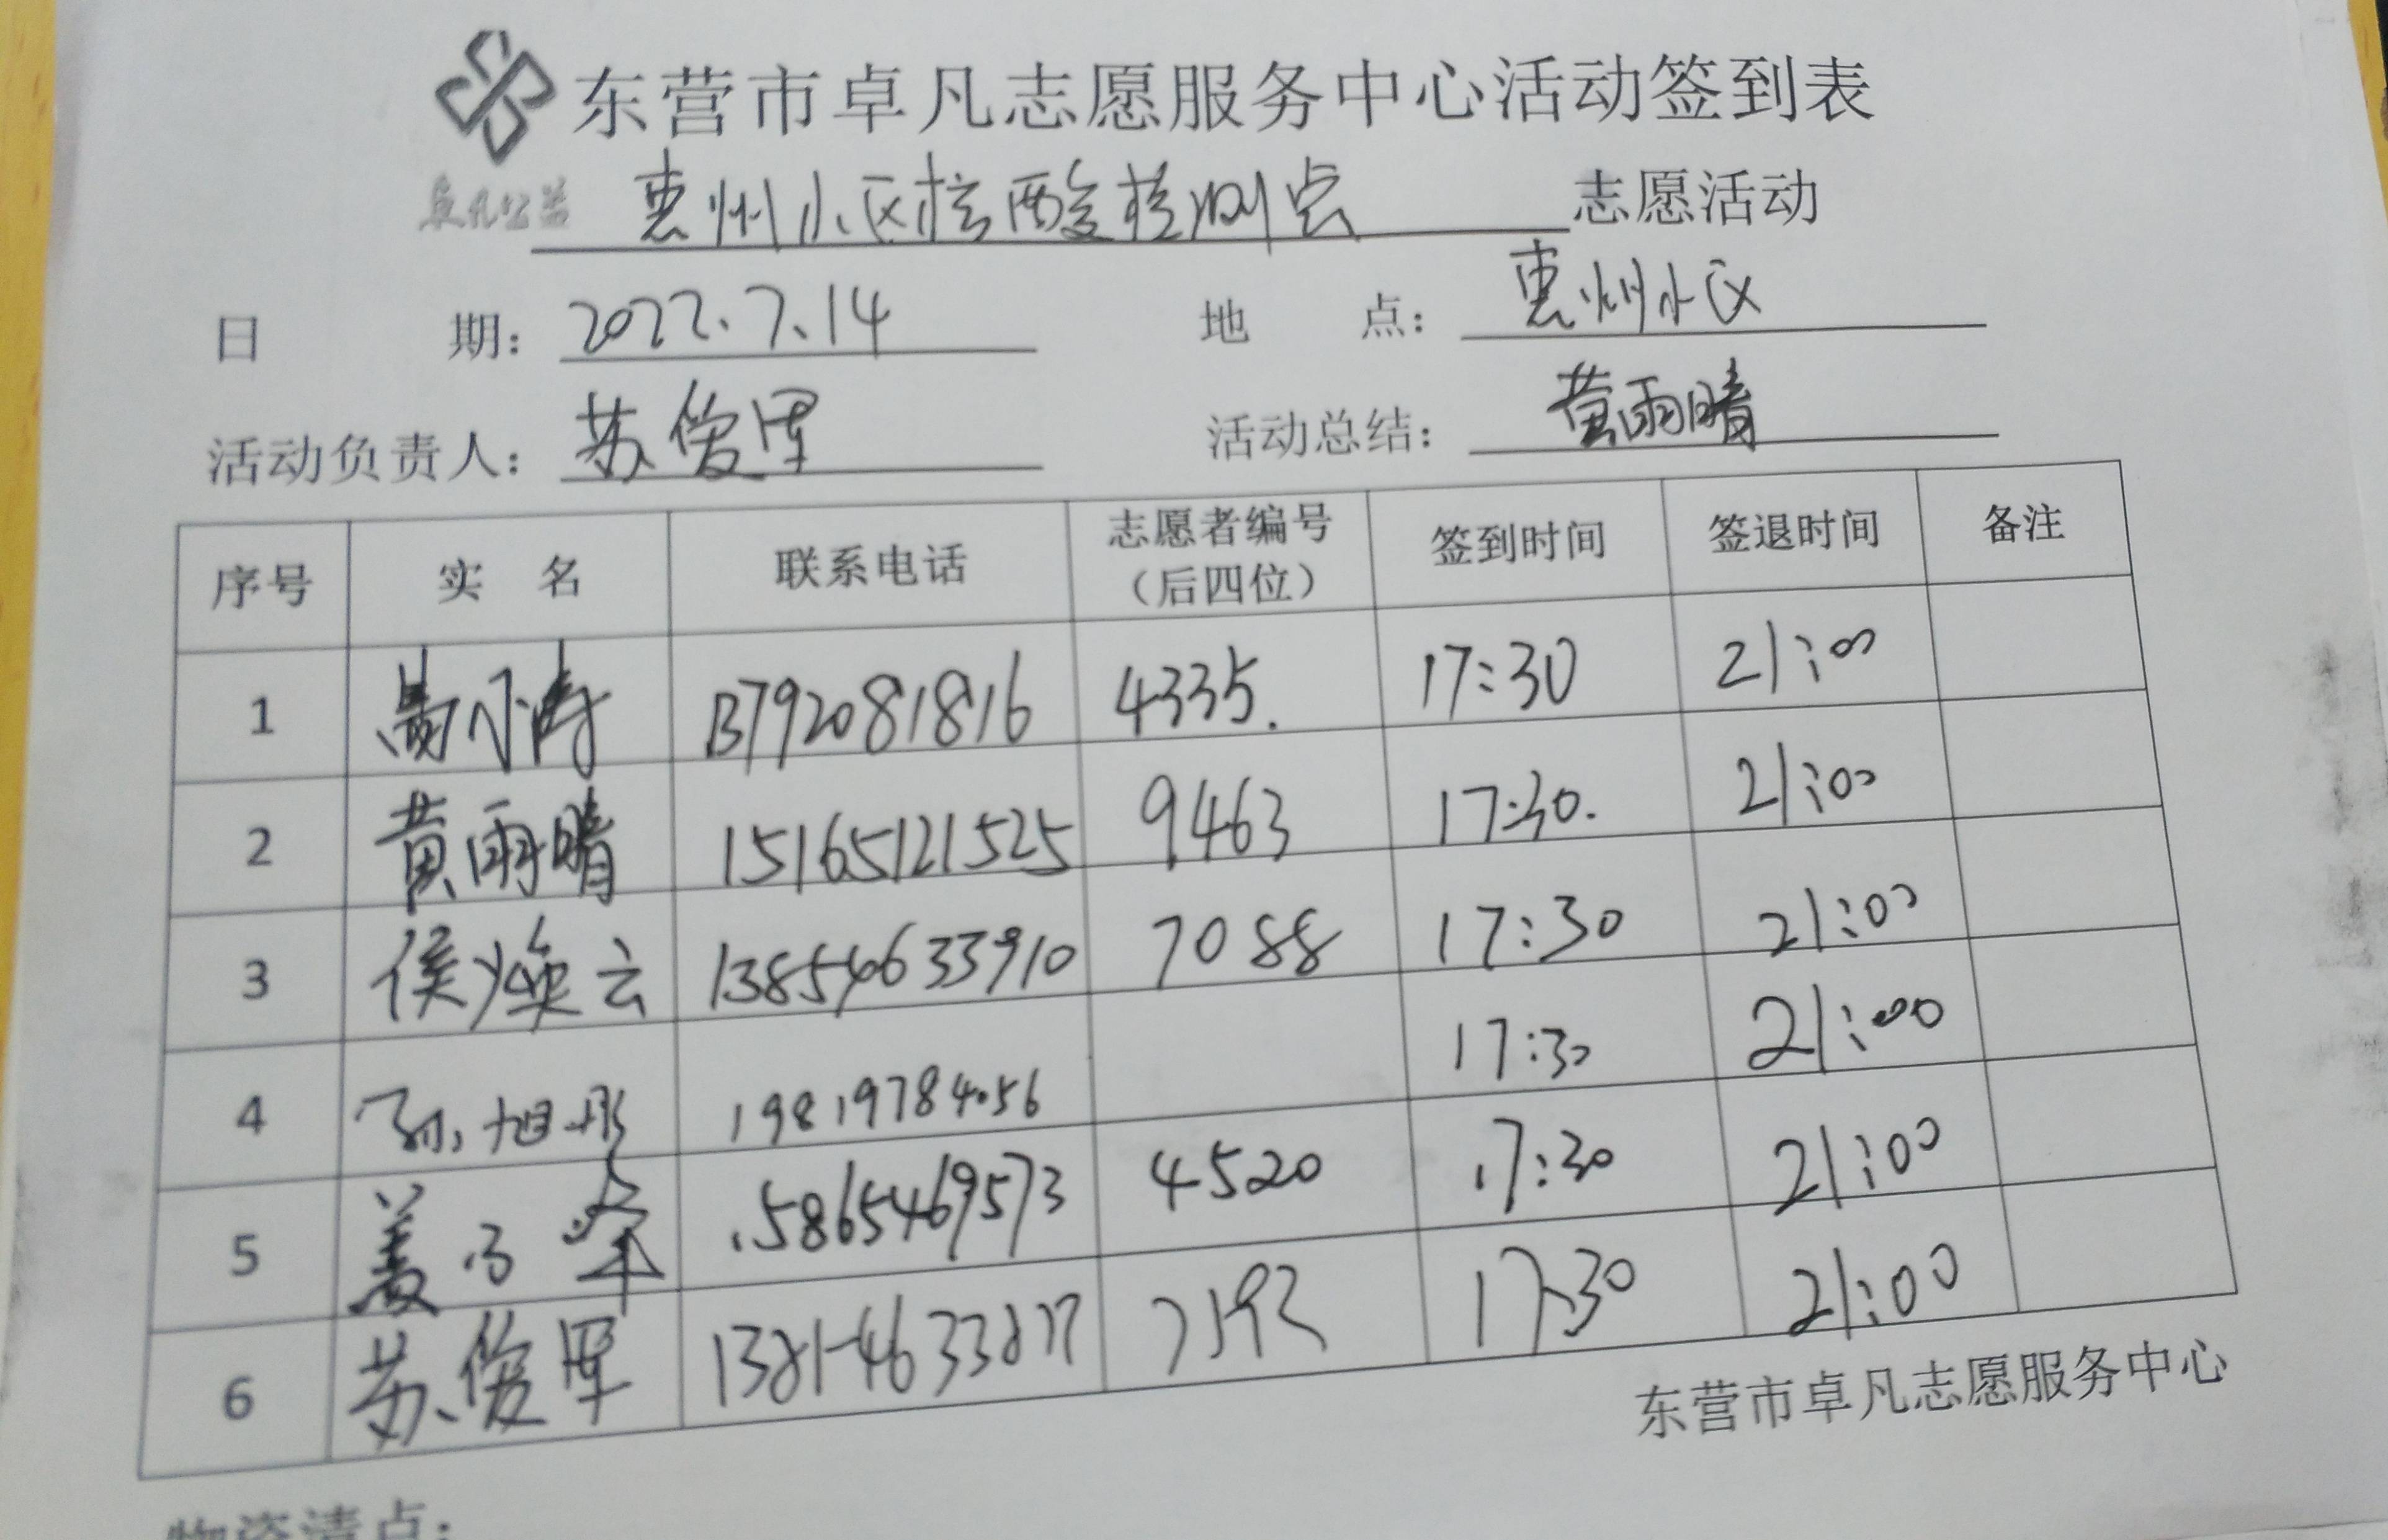 东营市卓凡志愿服务中心活动签到表
卓凡公益 惠州小区核酸检测点 志愿活动
日 期： 2022.7.14 地 点： 惠州小区
活动负责人： 苏俊军 活动总结： 黄雨晴
序号 实 名 联系电话 志愿者编号（后四位） 签到时间 签退时间 备注
1 13792081816 4335. 17:30 21:00
2 黄雨晴 15165121525 9463 17:30. 21:00
3 侯焕云 13854633910 7088 17:30 21:00
4 孙旭彤 19819784056 17:30 21:00
5 15865469573 4520 17:30 21:00
6 苏俊军 17:30 21:00
东营市卓凡志愿服务中心
物资清点：